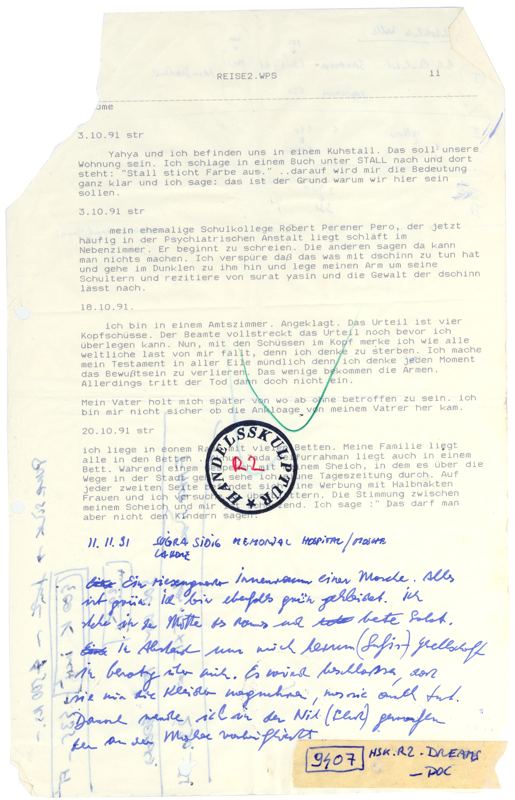 REISE2.WPS 11
ume
3.10.91 str
Yahya und ich befinden uns in einem Kuhstall. Das soll unsere
Wohnung sein. Ich schlage in einem Buch unter STALL nach und dort
steht: "Stall sticht Farbe aus." ..darauf wird mir die Bedeutung
ganz klar und ich sage: das ist der Grund warum wir hier sein
sollen.
3.10.91 str
mein ehemalige Schulkollege Robert Perener Pero, der jetzt
häufig in der Psychiatrischen Anstalt liegt schläft im
Nebenzimmer. Er beginnt zu schreien. Die anderen sagen da kann
man nichts machen. Ich verspüre daß das was mit dschinn zu tun hat
und gehe im Dunklen zu ihm hin und lege meinen Arm um seine
Schultern und rezitiere von surat yasin und die Gewalt der dschinn
lässt nach.
18.10.91.
ich bin in einem Amtszimmer. Angeklagt. Das Urteil ist vier
Kopfschüsse. Der Beamte vollstreckt das Urteil noch bevor ich
überlegen kann. Nun, mit den Schüssen im Kopf merke ich wie alle
weltliche last von mir fällt, denn ich denke zu sterben. Ich mache
mein Testament in aller Eile mündlich denn ich denke jeden Moment
das Bewußtsein zu verlieren. Das wenige bekommen die Armen.
Allerdings tritt der Tod dann doch nicht ein.
Mein Vater holt mich später von wo ab ohne betroffen zu sein. ich
bin mir nicht sicher ob die Anklage von meinem Vatrer her kam.
20.10.91 str
ich liege in eonem mit Betten. Meine Familie liegt
alle in den Betten liegt auch in einem
Bett. Während einem Sheich, in dem es über die
Wege in der Stadt sehe ich eine Tageszeitung durch. Auf
jeder zweiten Seite Werbung mit Halbnakten
Frauen und ich Die Stimmung zwischen
meinem Scheich und mir Ich sage :" Das darf man
aber nicht den Kindern sagen.
HANDELSSKULPTUR
R2
11.11.91 SUGRA SIDIQ MEMORIAL HOSPITAL/MOSCHE
LAHORE
Ein riesengrosser Innenraum einer Moschee. Alles
ist grün. Ich bin ebenfalls grün gekleidet. Ich
stehe in der Mitte des Raums und bete Salat.
In Abstand um mich herum (Sufis-) Gesellschaft
über mich. Es wird beschlossen, dass
sie mir die Kleider wegnehmen, was sie auch tut.
Danach werde ich in der Nil geworfen
der an der Moschee vorbeifliesst
9407 HSK.R2.DREAMS
-DOC